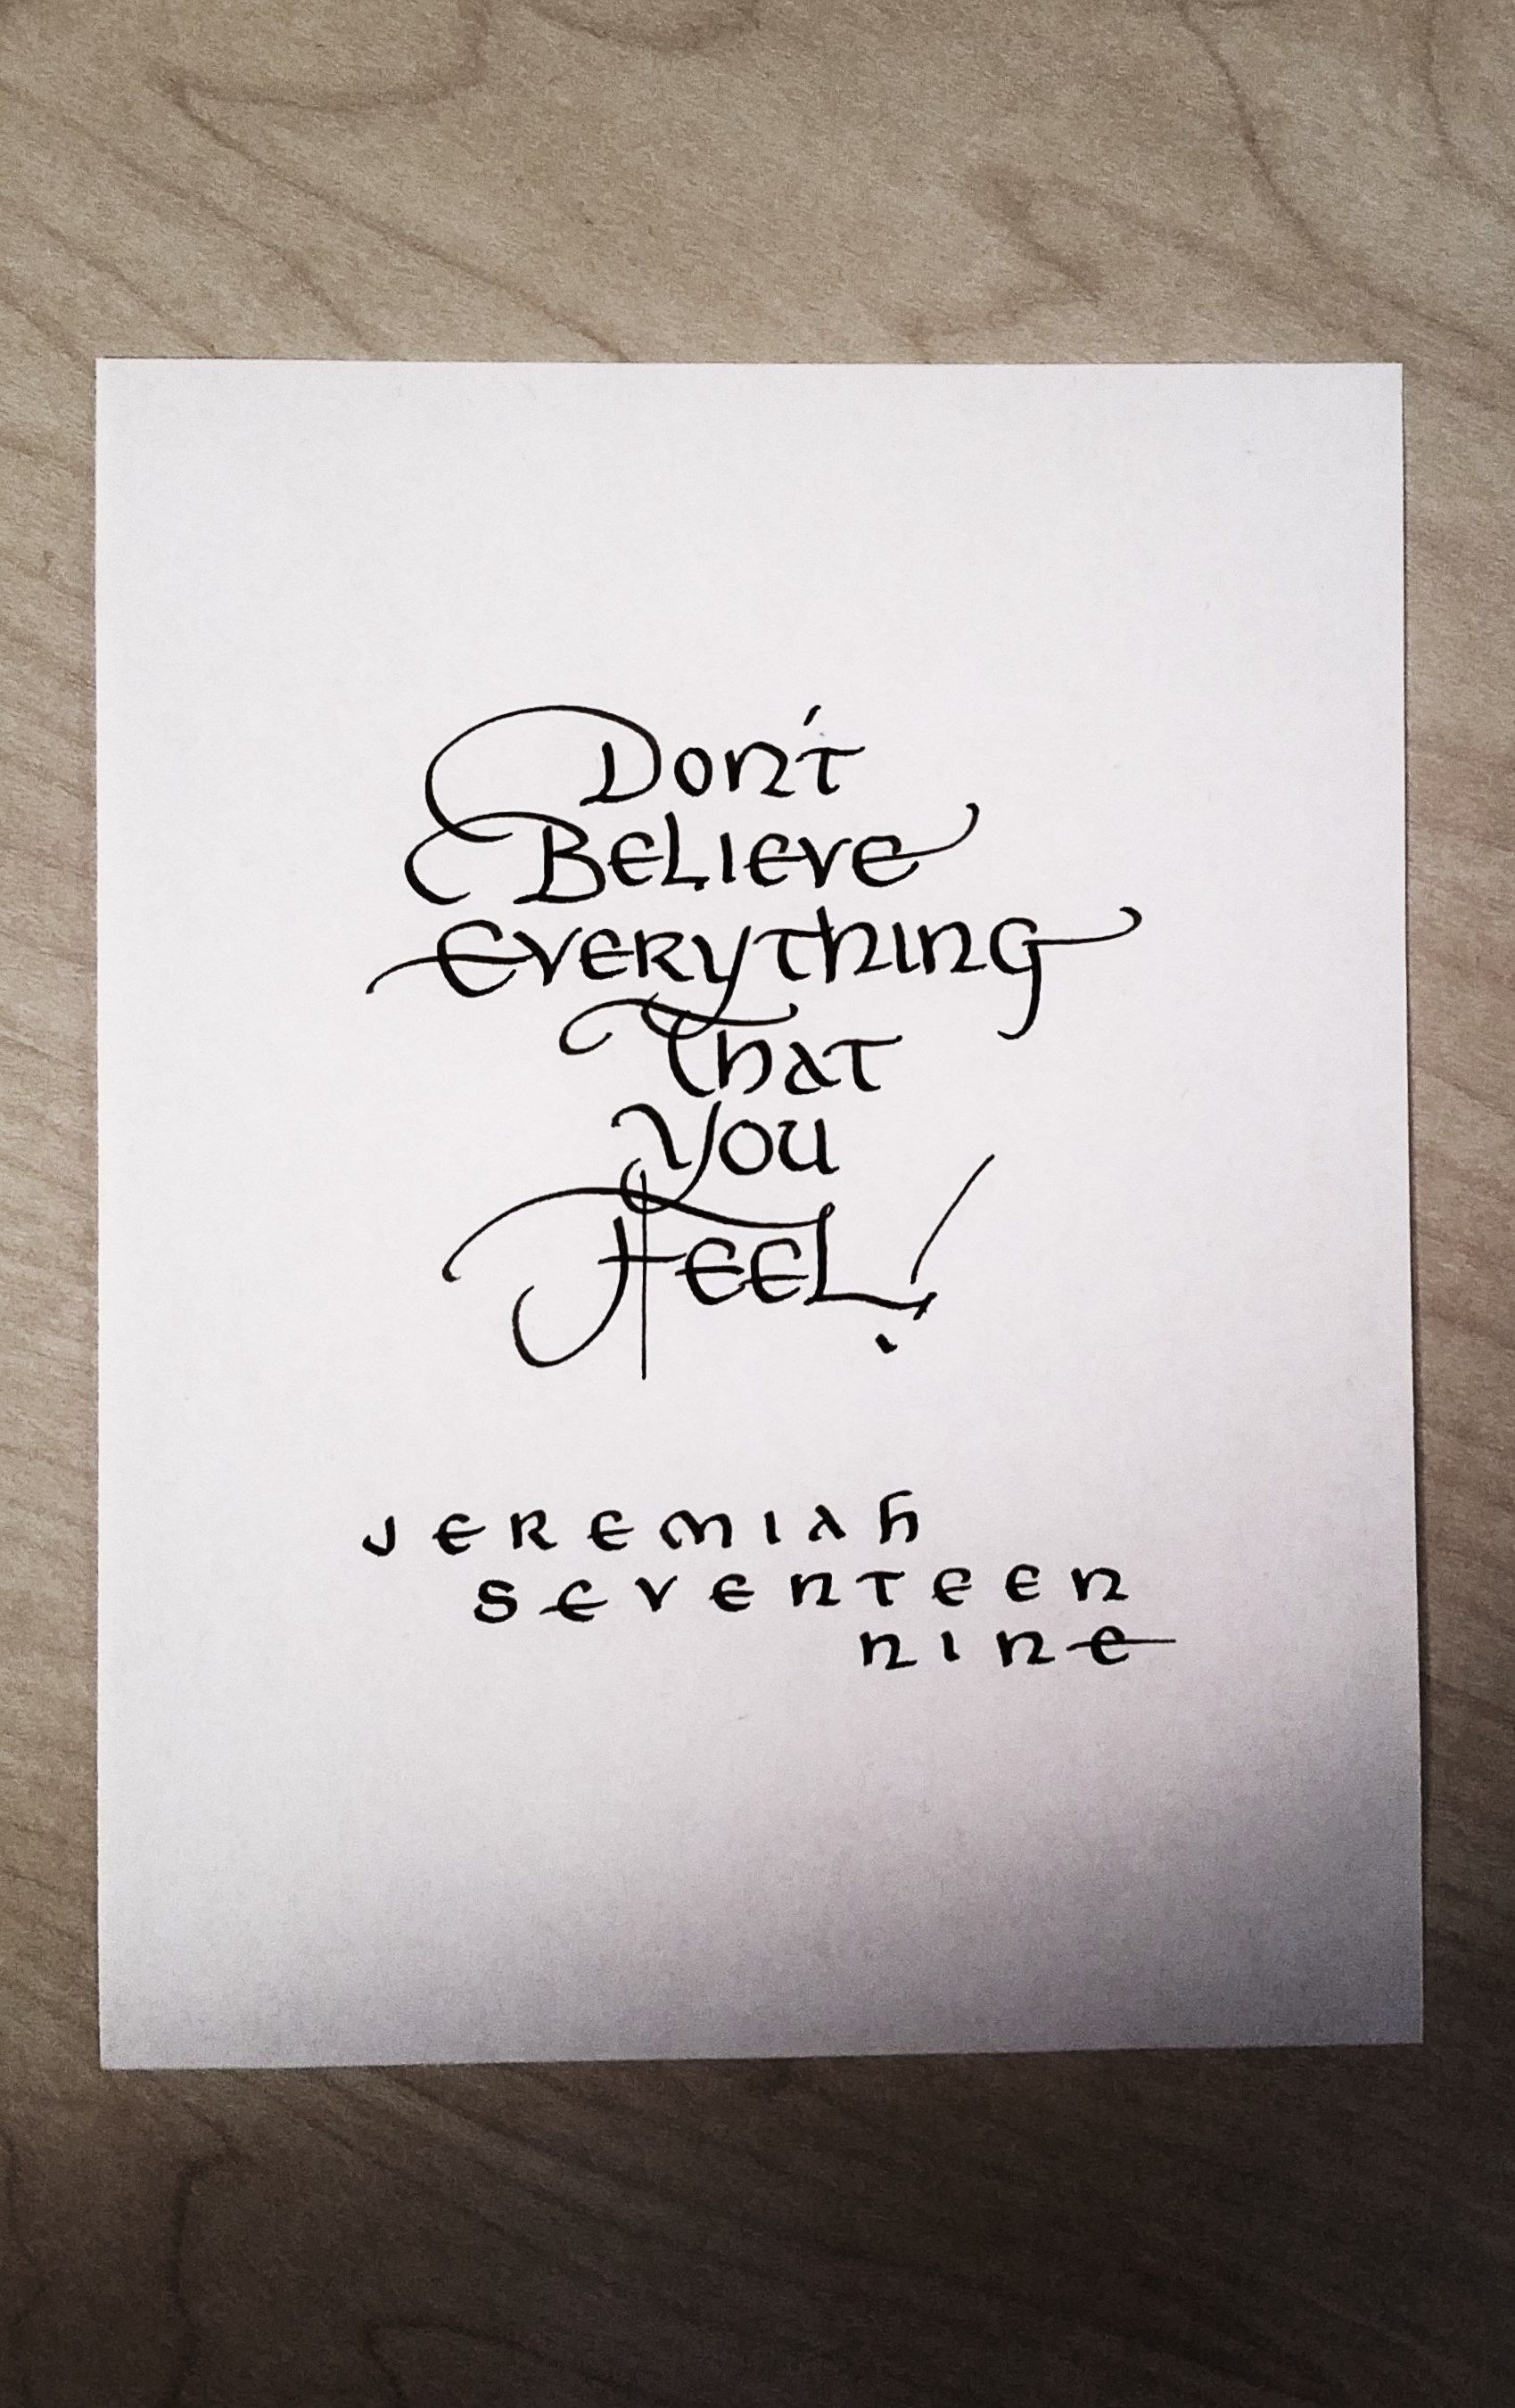 Don't
Believe
Everything
That
You
Feel!
Jeremiah
Seventeen
Nine